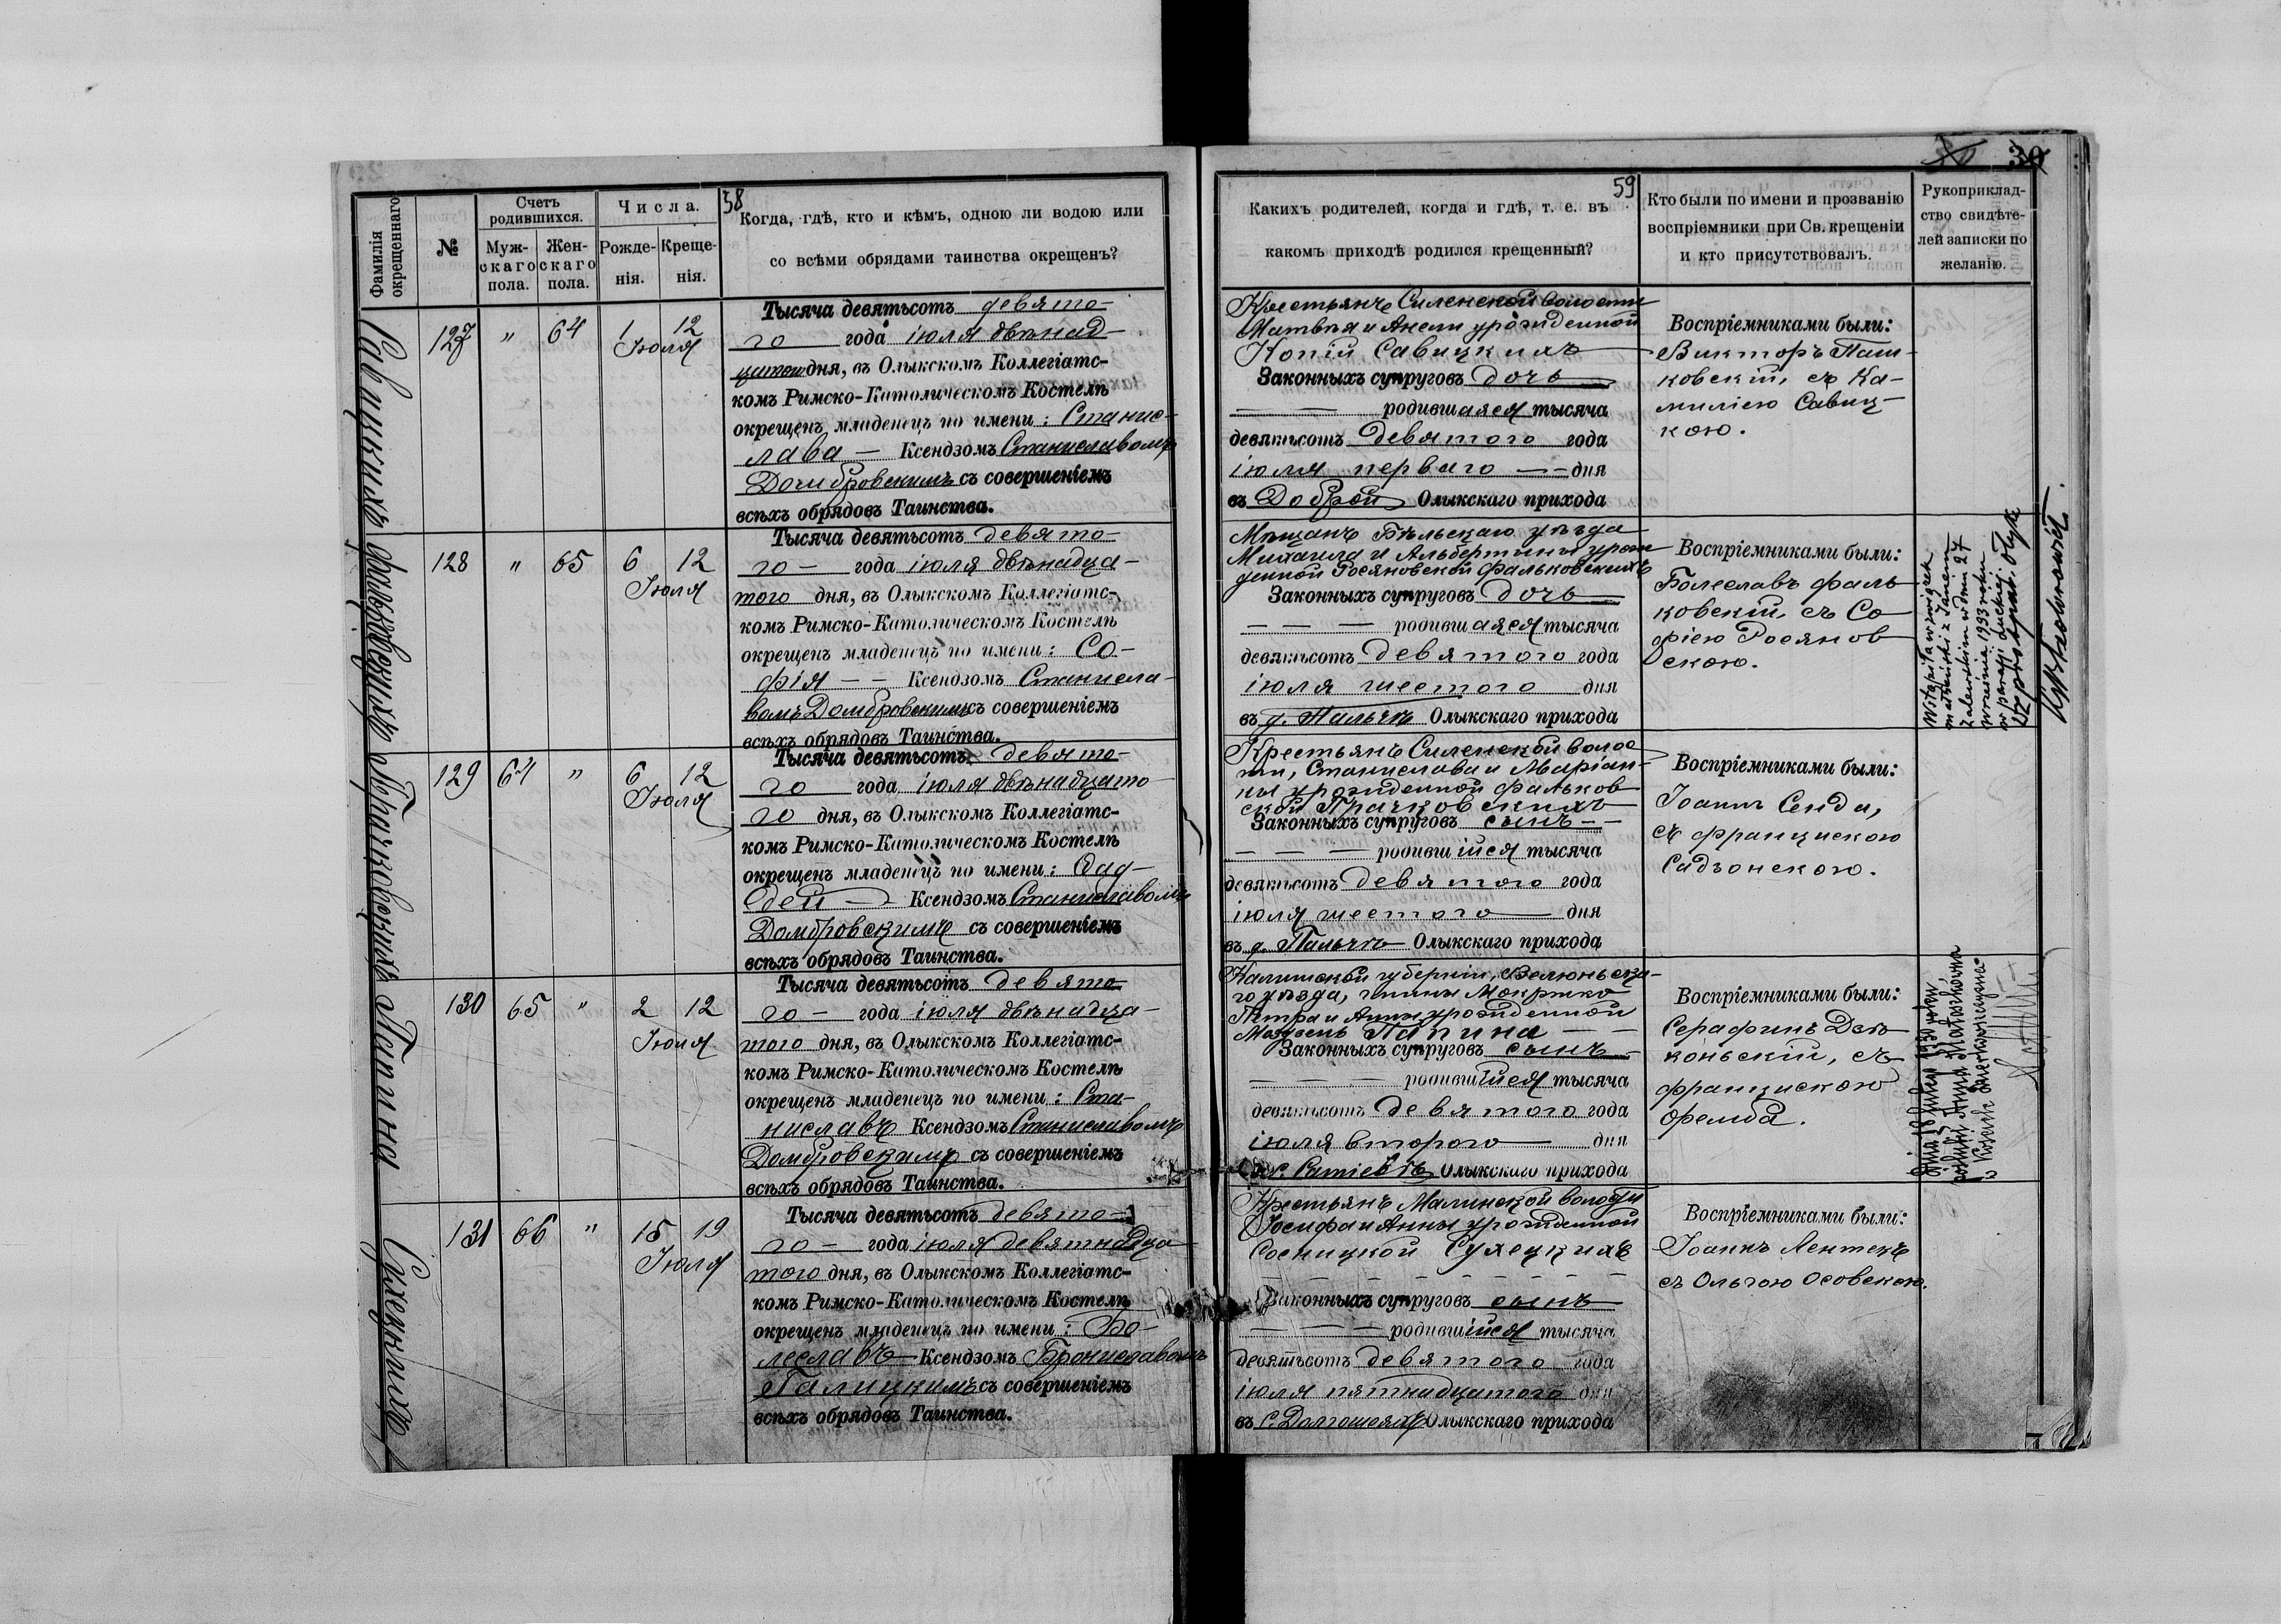 58
Фамилія окрещеннаго
№
Счетъ родившихся.
Мужскаго пола.
Женскаго пола.
Числа.
Рожденія.
Крещенія.
Когда, гдѣ, кто и кѣмъ, одною ли водою или
со всѣми обрядами таинства окрещенъ?
Савицкихъ
127 " 64 1 12
Іюля
Тысяча девятьсотъ девято-
го года іюля двѣнад-
цатого дня, въ Олыкскомъ Коллегіатс-
комъ Римско-Католическомъ Костелѣ
окрещенъ младенецъ по имени: Станис-
лава — Ксендзомъ Станиславомъ
Домбровскимъ съ совершеніемъ
всѣхъ обрядовъ Таинства.
Фальковскихъ
128 " 65 6 12
Іюля
Тысяча девятьсотъ девято-
го — года іюля двѣнадца-
того дня, въ Олыкскомъ Коллегіатс-
комъ Римско-Католическомъ Костелѣ
окрещенъ младенецъ по имени: Со-
фія — — Ксендзомъ Станисла-
вомъ Домбровскимъ съ совершеніемъ
всѣхъ обрядовъ Таинства.
Прачковскихъ
129 64 " 6 12
Іюля
Тысяча девятьсотъ девято-
го года іюля двѣнадцато-
го дня, въ Олыкскомъ Коллегіатс-
комъ Римско-Католическомъ Костелѣ
окрещенъ младенецъ по имени: Фад-
дей — Ксендзомъ Станиславомъ
Домбровскимъ съ совершеніемъ
всѣхъ обрядовъ Таинства.
Папина
130 65 " 2 12
Іюля
Тысяча девятьсотъ девято
го — года іюля двѣнадца-
того дня, въ Олыкскомъ Коллегіатс-
комъ Римско-Католическомъ Костелѣ
окрещенъ младенецъ по имени: Ста-
ниславъ Ксендзомъ Станиславомъ
Домбровскимъ съ совершеніемъ
всѣхъ обрядовъ Таинства.
Сухецкихъ
131 66 " 15 19
Іюля
Тысяча девятьсотъ девято-
го — года іюля девятнадца
того дня, въ Олыкскомъ Коллегіатс-
комъ Римско-Католическомъ Костелѣ
окрещенъ младенецъ по имени: Бо-
леславъ Ксендзомъ Брониславомъ
Галицкимъ съ совершеніемъ
всѣхъ обрядовъ Таинства.
59
30
Какихъ родителей, когда и гдѣ, т. е. въ
какомъ приходѣ родился крещенный?
Кто были по имени и прозванію
воспріемники при Св. крещеніи
и кто присутствовалъ.
Рукоприклад-
ство свидѣте-
лей записки по
желанію.
Крестьянъ Силенской волости
Матвѣя и Анели урожденной
Копій Савицкихъ
Законныхъ супруговъ дочь
— — родившаяся тысяча
девятьсотъ девятого года
іюля перваго — дня
въ Доброй Олыкскаго прихода
Воспріемниками были:
Викторъ Паш-
ковскій, съ Ка-
милією Савиц-
кою.
Мѣщанъ Бѣльскаго уѣзда
Михаила и Альбертины урож
денной Росяновской Фальковскихъ
Законныхъ супруговъ дочь
— — — родившаяся тысяча
девятьсотъ девятого года
іюля шестого дня
въ д. Пальчѣ Олыкскаго прихода
Воспріемниками были:
Болеславъ Фаль
ковскій, съ Со
фією Росянов
скою.
Wstąpiła w związek
małżeński z Janem
Zaleskim w dniu 27
września 1933 roku
w parafji Łuckiej. Ołyka
Крестьянъ Силенской волос
ти, Станислава и Маріан-
ны урожденной Фальков
ской Прачковскихъ
Законныхъ супруговъ сынъ — —
— — — родившійся тысяча
девятьсотъ девятого года
іюля шестого дня
въ д. Пальчѣ Олыкскаго прихода
Воспріемниками были:
Іоаннъ Сенда,
съ Францискою
Садзонскою.
Калишской губерніи, Велюньска-
го уѣзда, гмины Мокрско
Петра и Анны урожденной
Папина — —
Законныхъ супруговъ сынъ
— — — родившійся тысяча
девятьсотъ девятого года
іюля второго дня
Олыкскаго прихода
Воспріемниками были:
Серафинъ
коньскій, съ
Францискою
Фремба.
Dnia 18 lutego 1930 roku
Anna
Крестьянъ Малинской волости
Іосифа и Анны урожденной
Сосницкой Сухецкихъ
Законныхъ супруговъ сынъ
— — — родившійся тысяча
девятьсотъ девятого года
іюля пятнадцатого дня
въ с. Долгошеяхъ Олыкскаго прихода
Воспріемниками были:
Іоаннъ Лентекъ
съ Ольгою Осовскою.